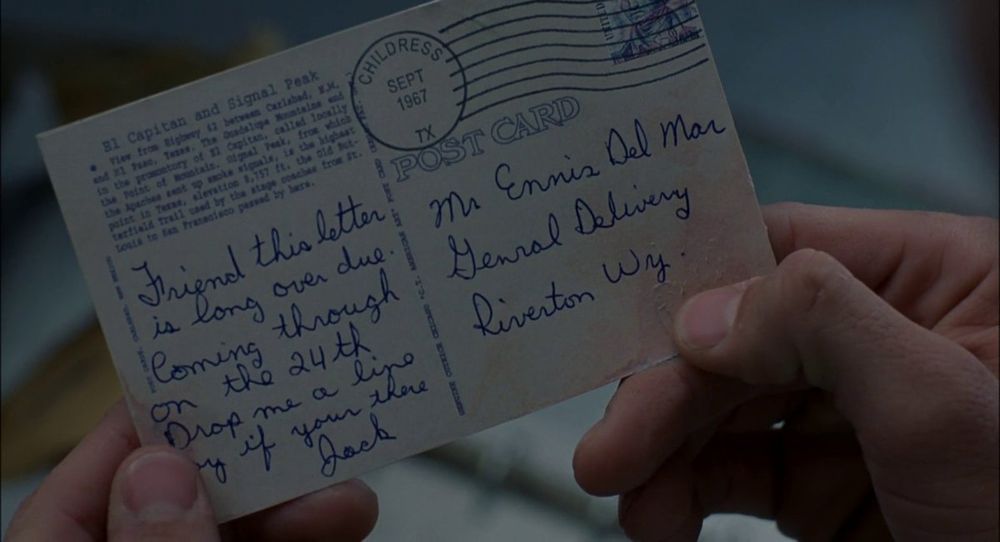 El Capitan and Signal Peak
View from Highway 62 between Carlsbad, N.M.
and El Paso, Texas. The Guadalupe Mountains and
in the promontory of El Capitan, called locally
the Point of Mountain. Signal Peak, from which
the Apaches sent up smoke signals, is the highest
point in Texas, elevation 8,757 ft. the Old But-
terfield Trail used by the stage coaches from St.
Louis to San Francisco passed by here.
CHILDRESS
SEPT
1967
TX
POST CARD
Friend this letter
is long over due.
Coming through
on the 24th
Drop me a line
if your there
Jack
Mr Ennis Del Mar
Genral Delivery
Riverton Wy.